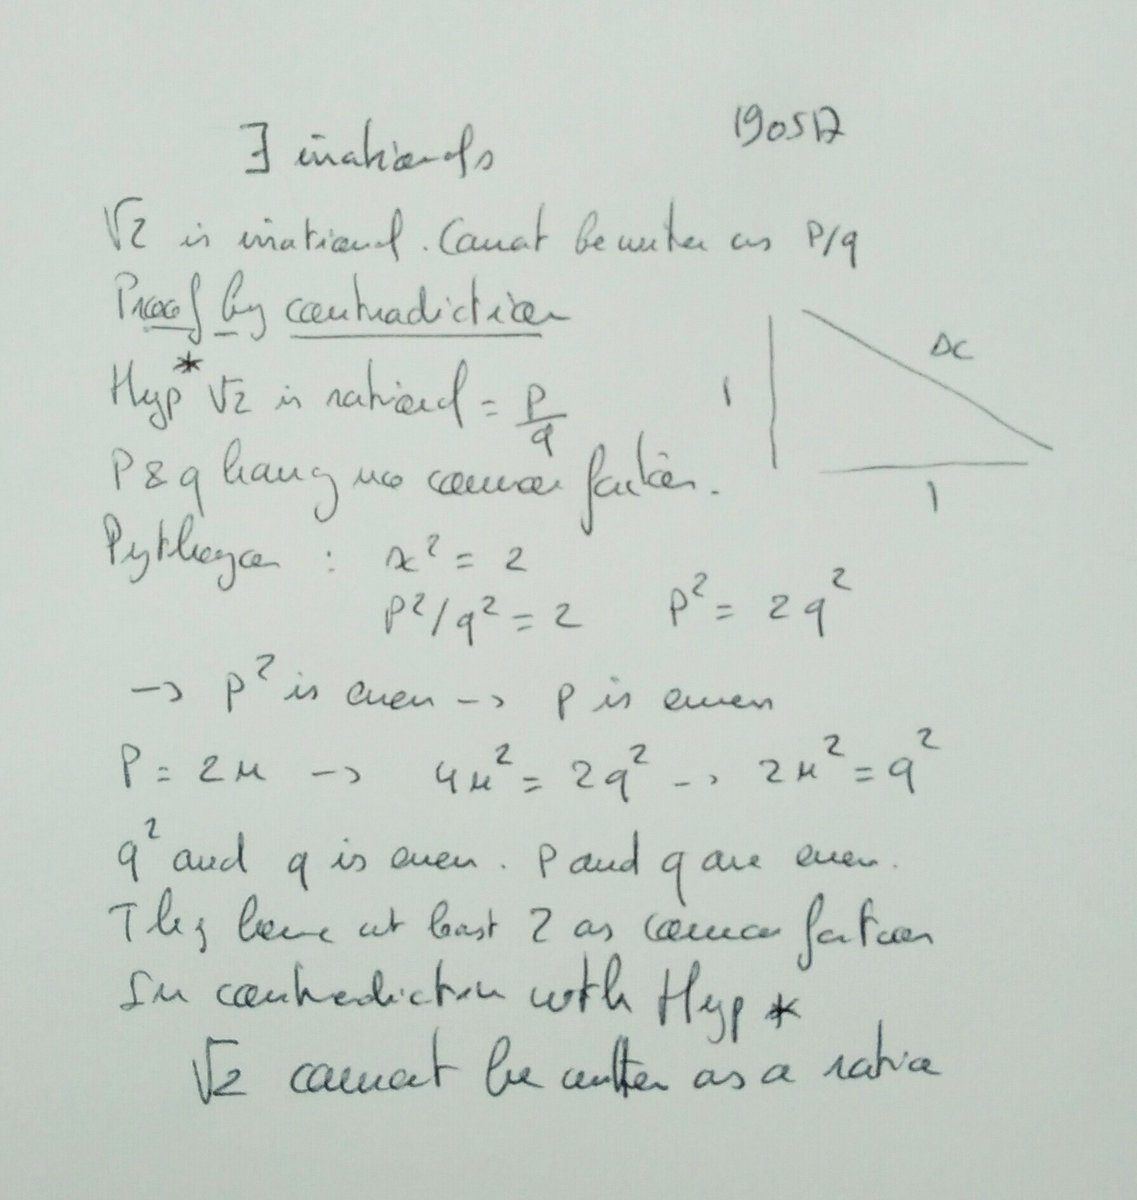 ∃ irrationals
190517
√2 is irrational. Cannot be written as P/q
Proof by contradiction
Hyp* √2 is rational = p/q
P & q having no common factor.
1
x
1
Pythagoras : x² = 2
P²/q² = 2 P² = 2q²
-> p² is even -> p is even
P = 2n -> 4n² = 2q² -> 2n² = q²
q² and q is even. P and q are even.
They have at least 2 as common factor
In contradiction with Hyp *
√2 cannot be written as a ratio